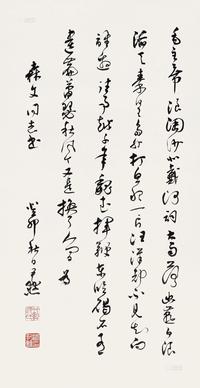 毛主席浪淘沙北戴河词大雨落幽燕白浪
滔天秦皇岛外打鱼船一片汪洋都不见知向
谁边往事越千年魏武挥鞭东临碣石有
遗篇萧瑟秋风今又是换了人间为
森文同志书
癸卯秋日尹默